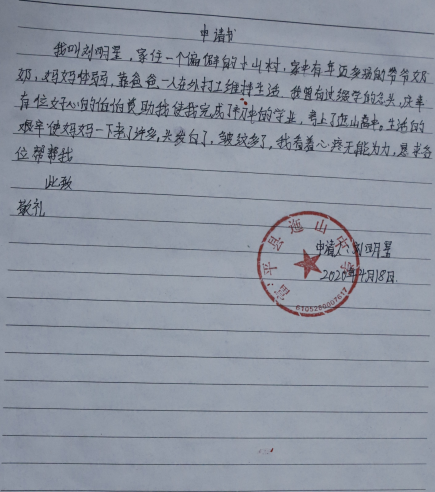 申请书
我叫刘明星，家住一个偏僻的小山村，家中有年迈多病的爷爷奶
奶，妈妈体弱，靠爸爸一人在外打工维持生活，我曾有过辍学的念头，庆幸
有位好心的伯伯资助我使我完成了初中的学业，考上了迤山高中，生活的
艰辛使妈妈一下老了许多，头发白了，皱纹多了，我看着心疼无能为力，恳求各
位帮帮我
此致
敬礼
申请人：刘明星
2020年4月18日
迤山中学